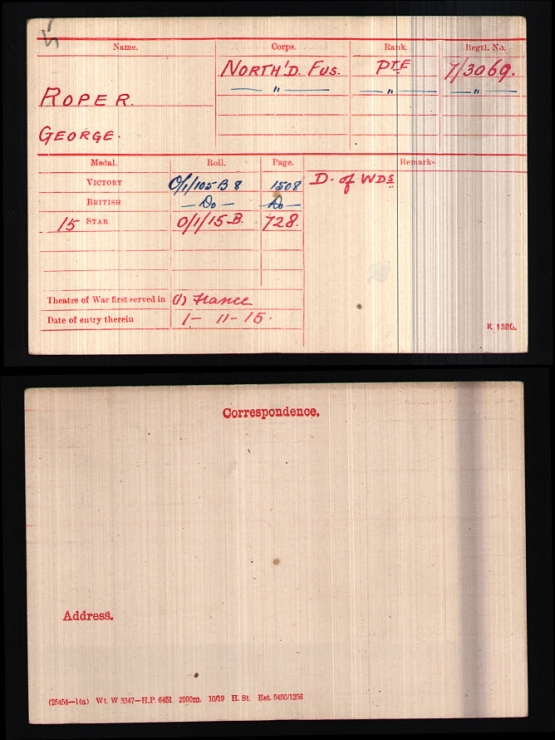 Name. Corps. Rank. Regtl. No.
NORTH'D. FUS. PTE 7/3069.
" " "
ROPER.
GEORGE.
Medal. Roll. Page. Remarks
VICTORY O/1/105 B 8 1508 D. of WDS
BRITISH —Do— —Do—
15 STAR O/1/15 B. 728.
Theatre of War first served in (1) France
Date of entry therein 1 - 11 - 15.
K 1380.
Correspondence.
Address.
(26454—14(a) Wt. W 3347—H.P. 6451 2000m. 10/19 H. St. Est. 5450/1256